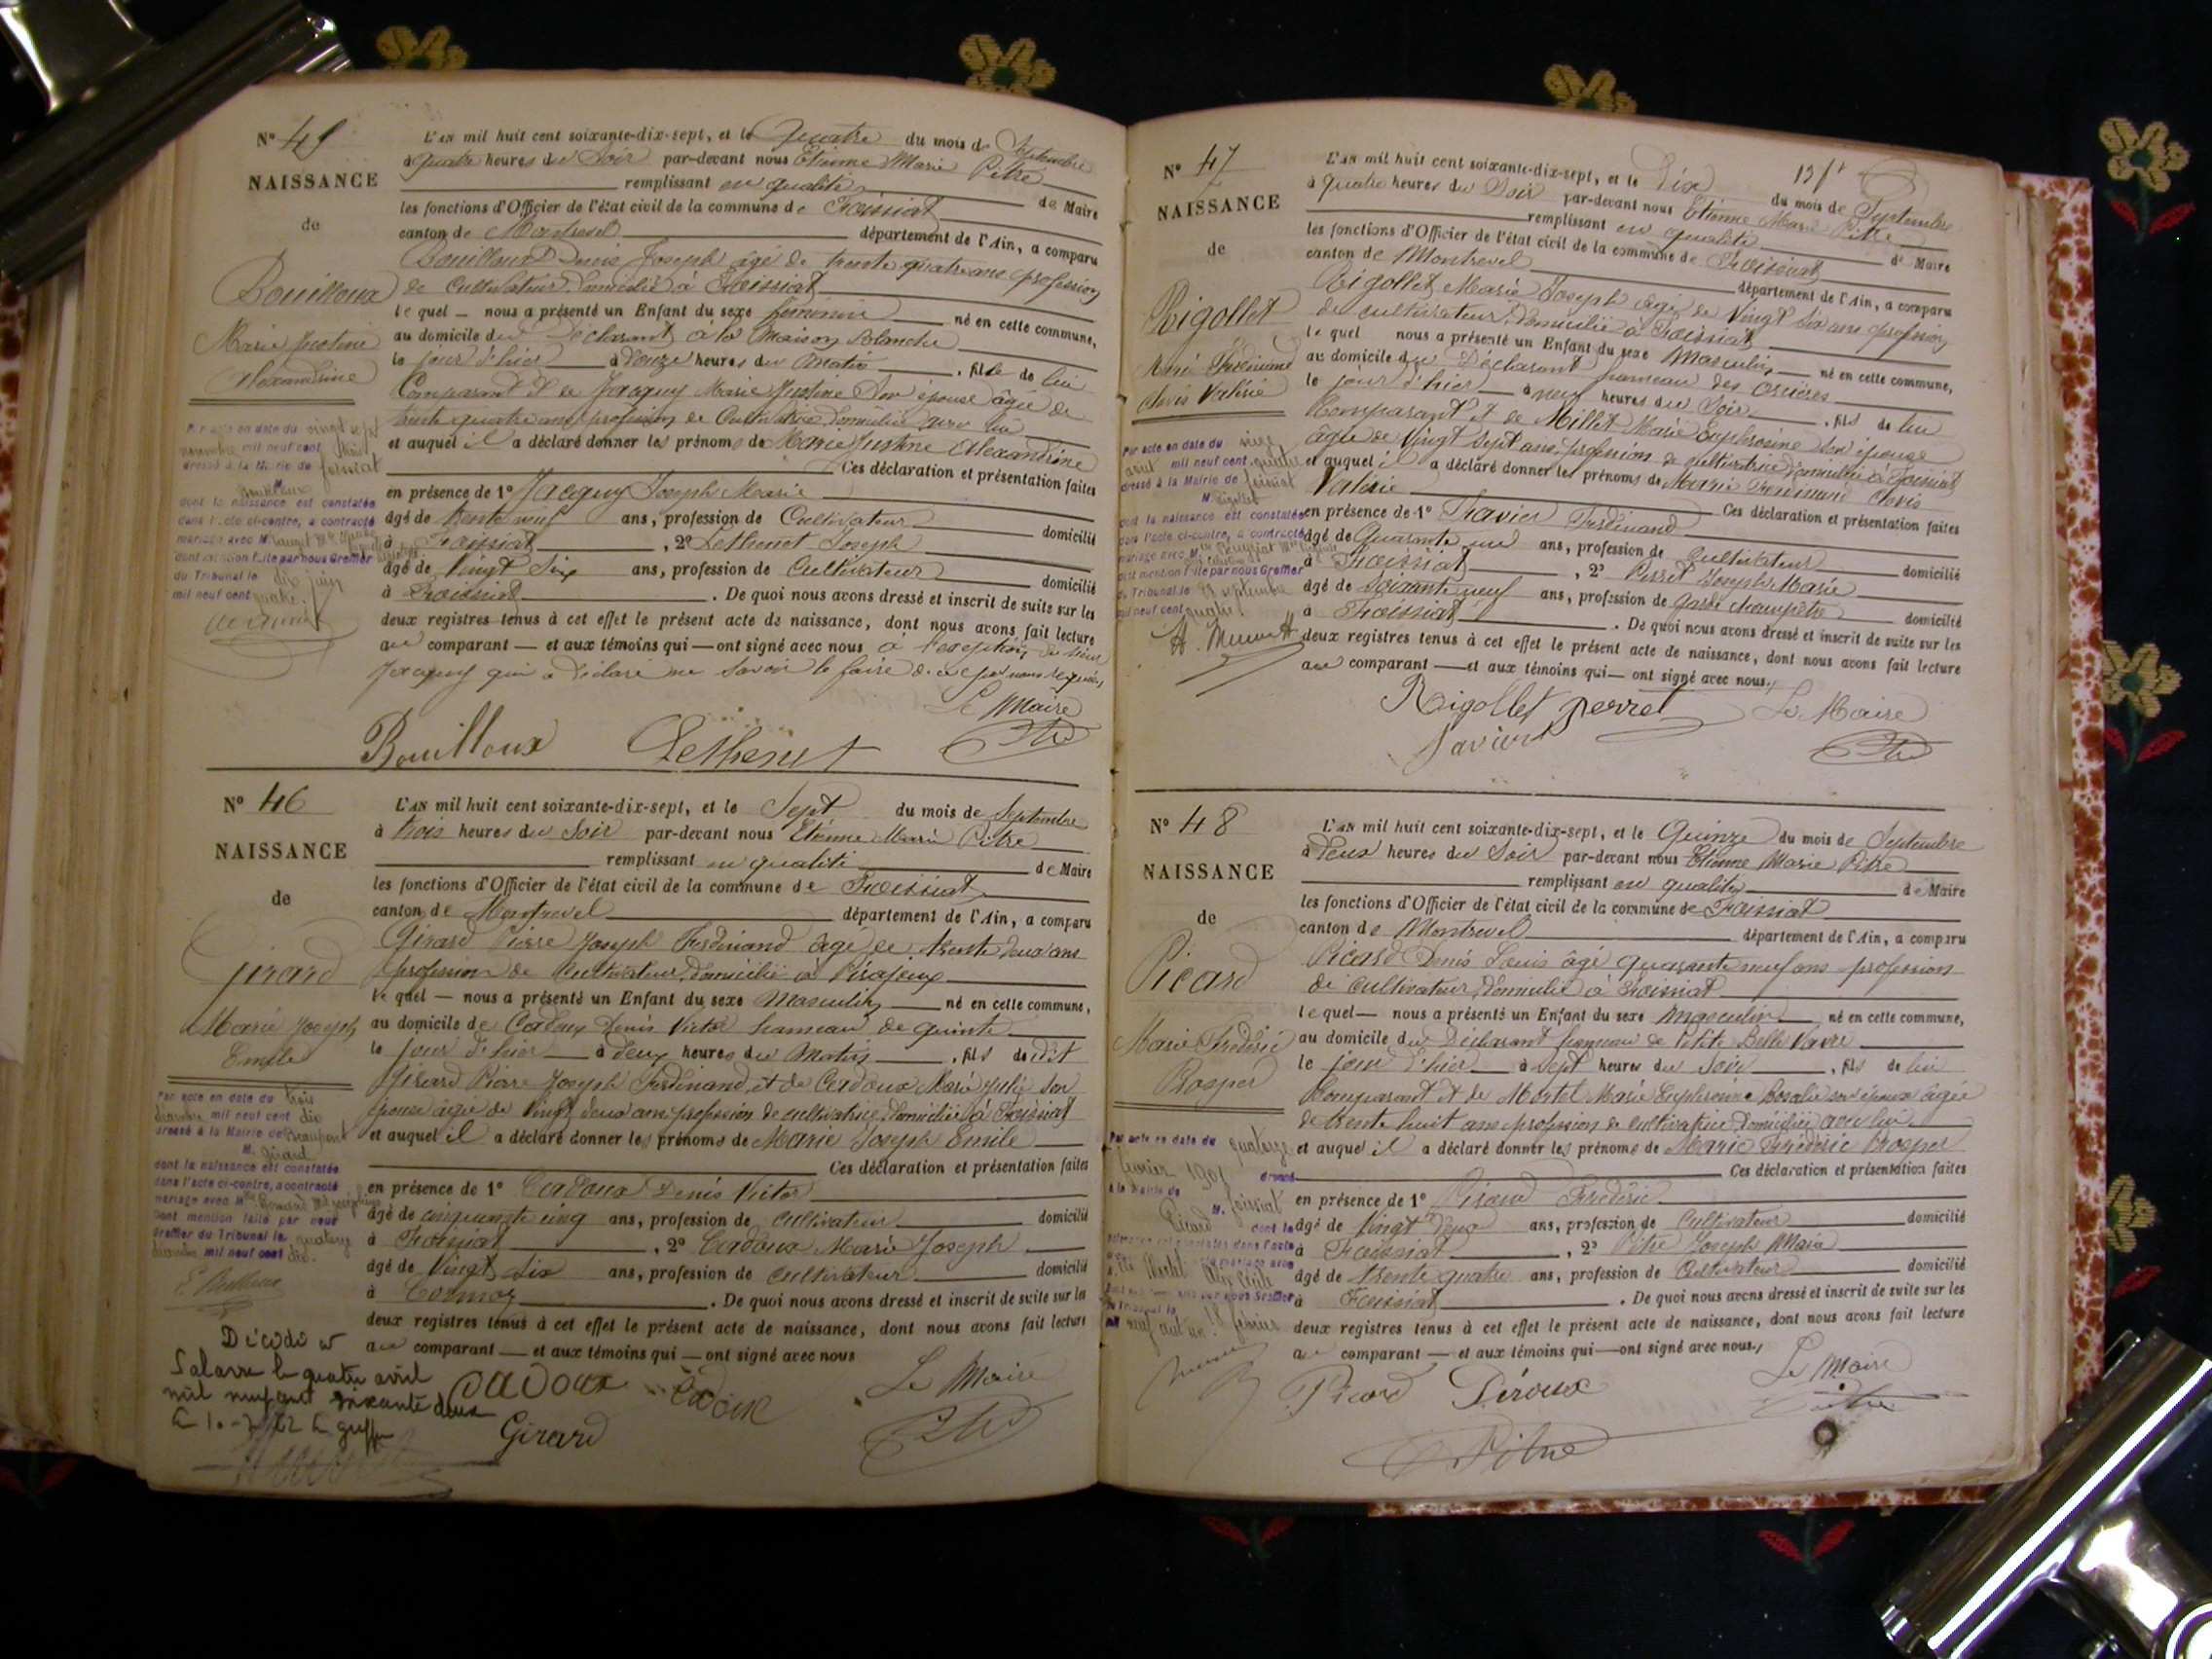 N° 45
NAISSANCE
de
Bouilloux
Marie Justine
Alexandrine
L'AN mil huit cent soixante-dix-sept, et le Quatre du mois de Septembre
à Quatre heures du Soir par-devant nous Etienne Marie Pitre
remplissant en qualité de Maire
les fonctions d'Officier de l'état civil de la commune de Foissiat
canton de Montrevel département de l'Ain, a comparu
Bouilloux Denis Joseph âgé de trente quatre ans profession
de Cultivateur domicilié à Foissiat
le quel — nous a présenté un Enfant du sexe féminin né en cette commune,
au domicile du Déclarant à la Maison Blanche
le jour d'hier à onze heures du Matin , fille de lui
Comparant et de Jacquy Marie Justine son épouse âgée de
trente quatre ans profession de Cultivatrice domiciliée avec lui
et auquel il a déclaré donner les prénoms de Marie Justine Alexandrine
Ces déclaration et présentation faites
en présence de 1° Jacquy Joseph Marie
âgé de trente neuf ans, profession de Cultivateur domicilié
à Foissiat , 2° Lethenet Joseph
âgé de Vingt Six ans, profession de Cultivateur domicilié
à Foissiat . De quoi nous avons dressé et inscrit de suite sur les
deux registres tenus à cet effet le présent acte de naissance, dont nous avons fait lecture
au comparant — et aux témoins qui — ont signé avec nous à l'exception du sieur
Jacquy qui a déclaré ne savoir le faire de ce par nous requis,
Le Maire
Bouilloux Lethenet
Par acte en date du vingt sept
novembre mil neuf cent
dressé à la Mairie de Foissiat
Bouilloux
dont la naissance est constatée
dans l'acte ci-contre, a contracté
mariage avec M.
dont mention faite par nous Greffier
du Tribunal le dix juin
mil neuf cent
N° 46
NAISSANCE
de
Girard
Marie Joseph
Emile
L'AN mil huit cent soixante-dix-sept, et le Sept du mois de Septembre
à trois heures du Soir par-devant nous Etienne Marie Pitre
remplissant en qualité de Maire
les fonctions d'Officier de l'état civil de la commune de Foissiat
canton de Montrevel département de l'Ain, a comparu
Girard Pierre Joseph Ferdinand âgé de trente deux ans
profession de Cultivateur domicilié à Pirajoux
le quel — nous a présenté un Enfant du sexe Masculin né en cette commune,
au domicile de Cadoux Denis Victor hameau de quinte
le jour d'hier à deux heures du Matin , fils de dit
Girard Pierre Joseph Ferdinand et de Cadoux Marie Julie son
épouse âgée de Vingt deux ans profession de cultivatrice domiciliée à Foissiat
et auquel il a déclaré donner les prénoms de Marie Joseph Emile
Ces déclaration et présentation faites
en présence de 1° Cadoux Denis Victor
âgé de cinquante cinq ans, profession de Cultivateur domicilié
à Foissiat , 2° Cadoux Marie Joseph
âgé de Vingt six ans, profession de Cultivateur domicilié
à Cormoz . De quoi nous avons dressé et inscrit de suite sur les
deux registres tenus à cet effet le présent acte de naissance, dont nous avons fait lecture
au comparant — et aux témoins qui — ont signé avec nous
Le Maire
Cadoux Cadoux
Girard
Par acte en date du trois
décembre mil neuf cent dix
dressé à la Mairie de Beaupont
M. Girard
dont la naissance est constatée
dans l'acte ci-contre, a contracté
mariage avec Mlle
dont mention faite par nous
Greffier du Tribunal le quatorze
décembre mil neuf cent dix.
Décédé à
le quatre avril
mil neuf cent soixante deux
N° 47
NAISSANCE
de
Rigollet
Marie Ferdinand
Clovis Valérie
L'AN mil huit cent soixante-dix-sept, et le Dix du mois de Septembre
à Quatre heures du Soir par-devant nous Etienne Marie Pitre
remplissant en qualité de Maire
les fonctions d'Officier de l'état civil de la commune de Foissiat
canton de Montrevel département de l'Ain, a comparu
Rigollet Marie Joseph âgé de Vingt six ans profession
de cultivateur domicilié à Foissiat
le quel nous a présenté un Enfant du sexe Masculin né en cette commune,
au domicile du Déclarant hameau des Orcières
le jour d'hier à neuf heures du Soir , fils de lui
Comparant et de Millet Marie Euphrosine son épouse
âgée de Vingt sept ans, profession de cultivatrice domiciliée à Foissiat
et auquel il a déclaré donner les prénoms de Marie Ferdinand Clovis
Valérie Ces déclaration et présentation faites
en présence de 1° Travier Ferdinand
âgé de Quarante un ans, profession de Cultivateur domicilié
à Foissiat , 2° Perret Joseph Marie
âgé de Soixante neuf ans, profession de Garde champêtre domicilié
à Foissiat . De quoi nous avons dressé et inscrit de suite sur les
deux registres tenus à cet effet le présent acte de naissance, dont nous avons fait lecture
au comparant — et aux témoins qui — ont signé avec nous,
Rigollet perret Le Maire
Par acte en date du
août mil neuf cent quatre
dressé à la Mairie de Foissiat
M. Rigollet
dont la naissance est constatée
dans l'acte ci-contre, a contracté
mariage avec Mlle
dont mention faite par nous Greffier
du Tribunal le septembre
mil neuf cent quatre
N° 48
NAISSANCE
de
Picard
Marie Frédéric
Prosper
L'AN mil huit cent soixante-dix-sept, et le Quinze du mois de Septembre
à Deux heures du Soir par-devant nous Etienne Marie Pitre
remplissant en qualité de Maire
les fonctions d'Officier de l'état civil de la commune de Foissiat
canton de Montrevel département de l'Ain, a comparu
Picard Denis Louis âgé quarante neuf ans profession
de Cultivateur domicilié à Foissiat
le quel — nous a présenté un Enfant du sexe Masculin né en cette commune,
au domicile du Déclarant hameau de Petite Belle Vavre
le jour d'hier à Sept heures du Soir , fils de lui
Comparant et de Mortel Marie Euphrosine Rosalie son épouse âgée
de trente huit ans profession de Cultivatrice domiciliée avec lui
et auquel il a déclaré donner les prénoms de Marie Frédéric Prosper
Ces déclaration et présentation faites
en présence de 1° Frédéric
âgé de Vingt deux ans, profession de Cultivateur domicilié
à Foissiat , 2° Pitre Joseph Marie
âgé de trente quatre ans, profession de Cultivateur domicilié
à Foissiat . De quoi nous avons dressé et inscrit de suite sur les
deux registres tenus à cet effet le présent acte de naissance, dont nous avons fait lecture
au comparant — et aux témoins qui — ont signé avec nous,
Le Maire
Picard Péroux
Pitre
Par acte en date du quatorze
février 1901 dressé
à la Mairie de Foissiat
M. Picard